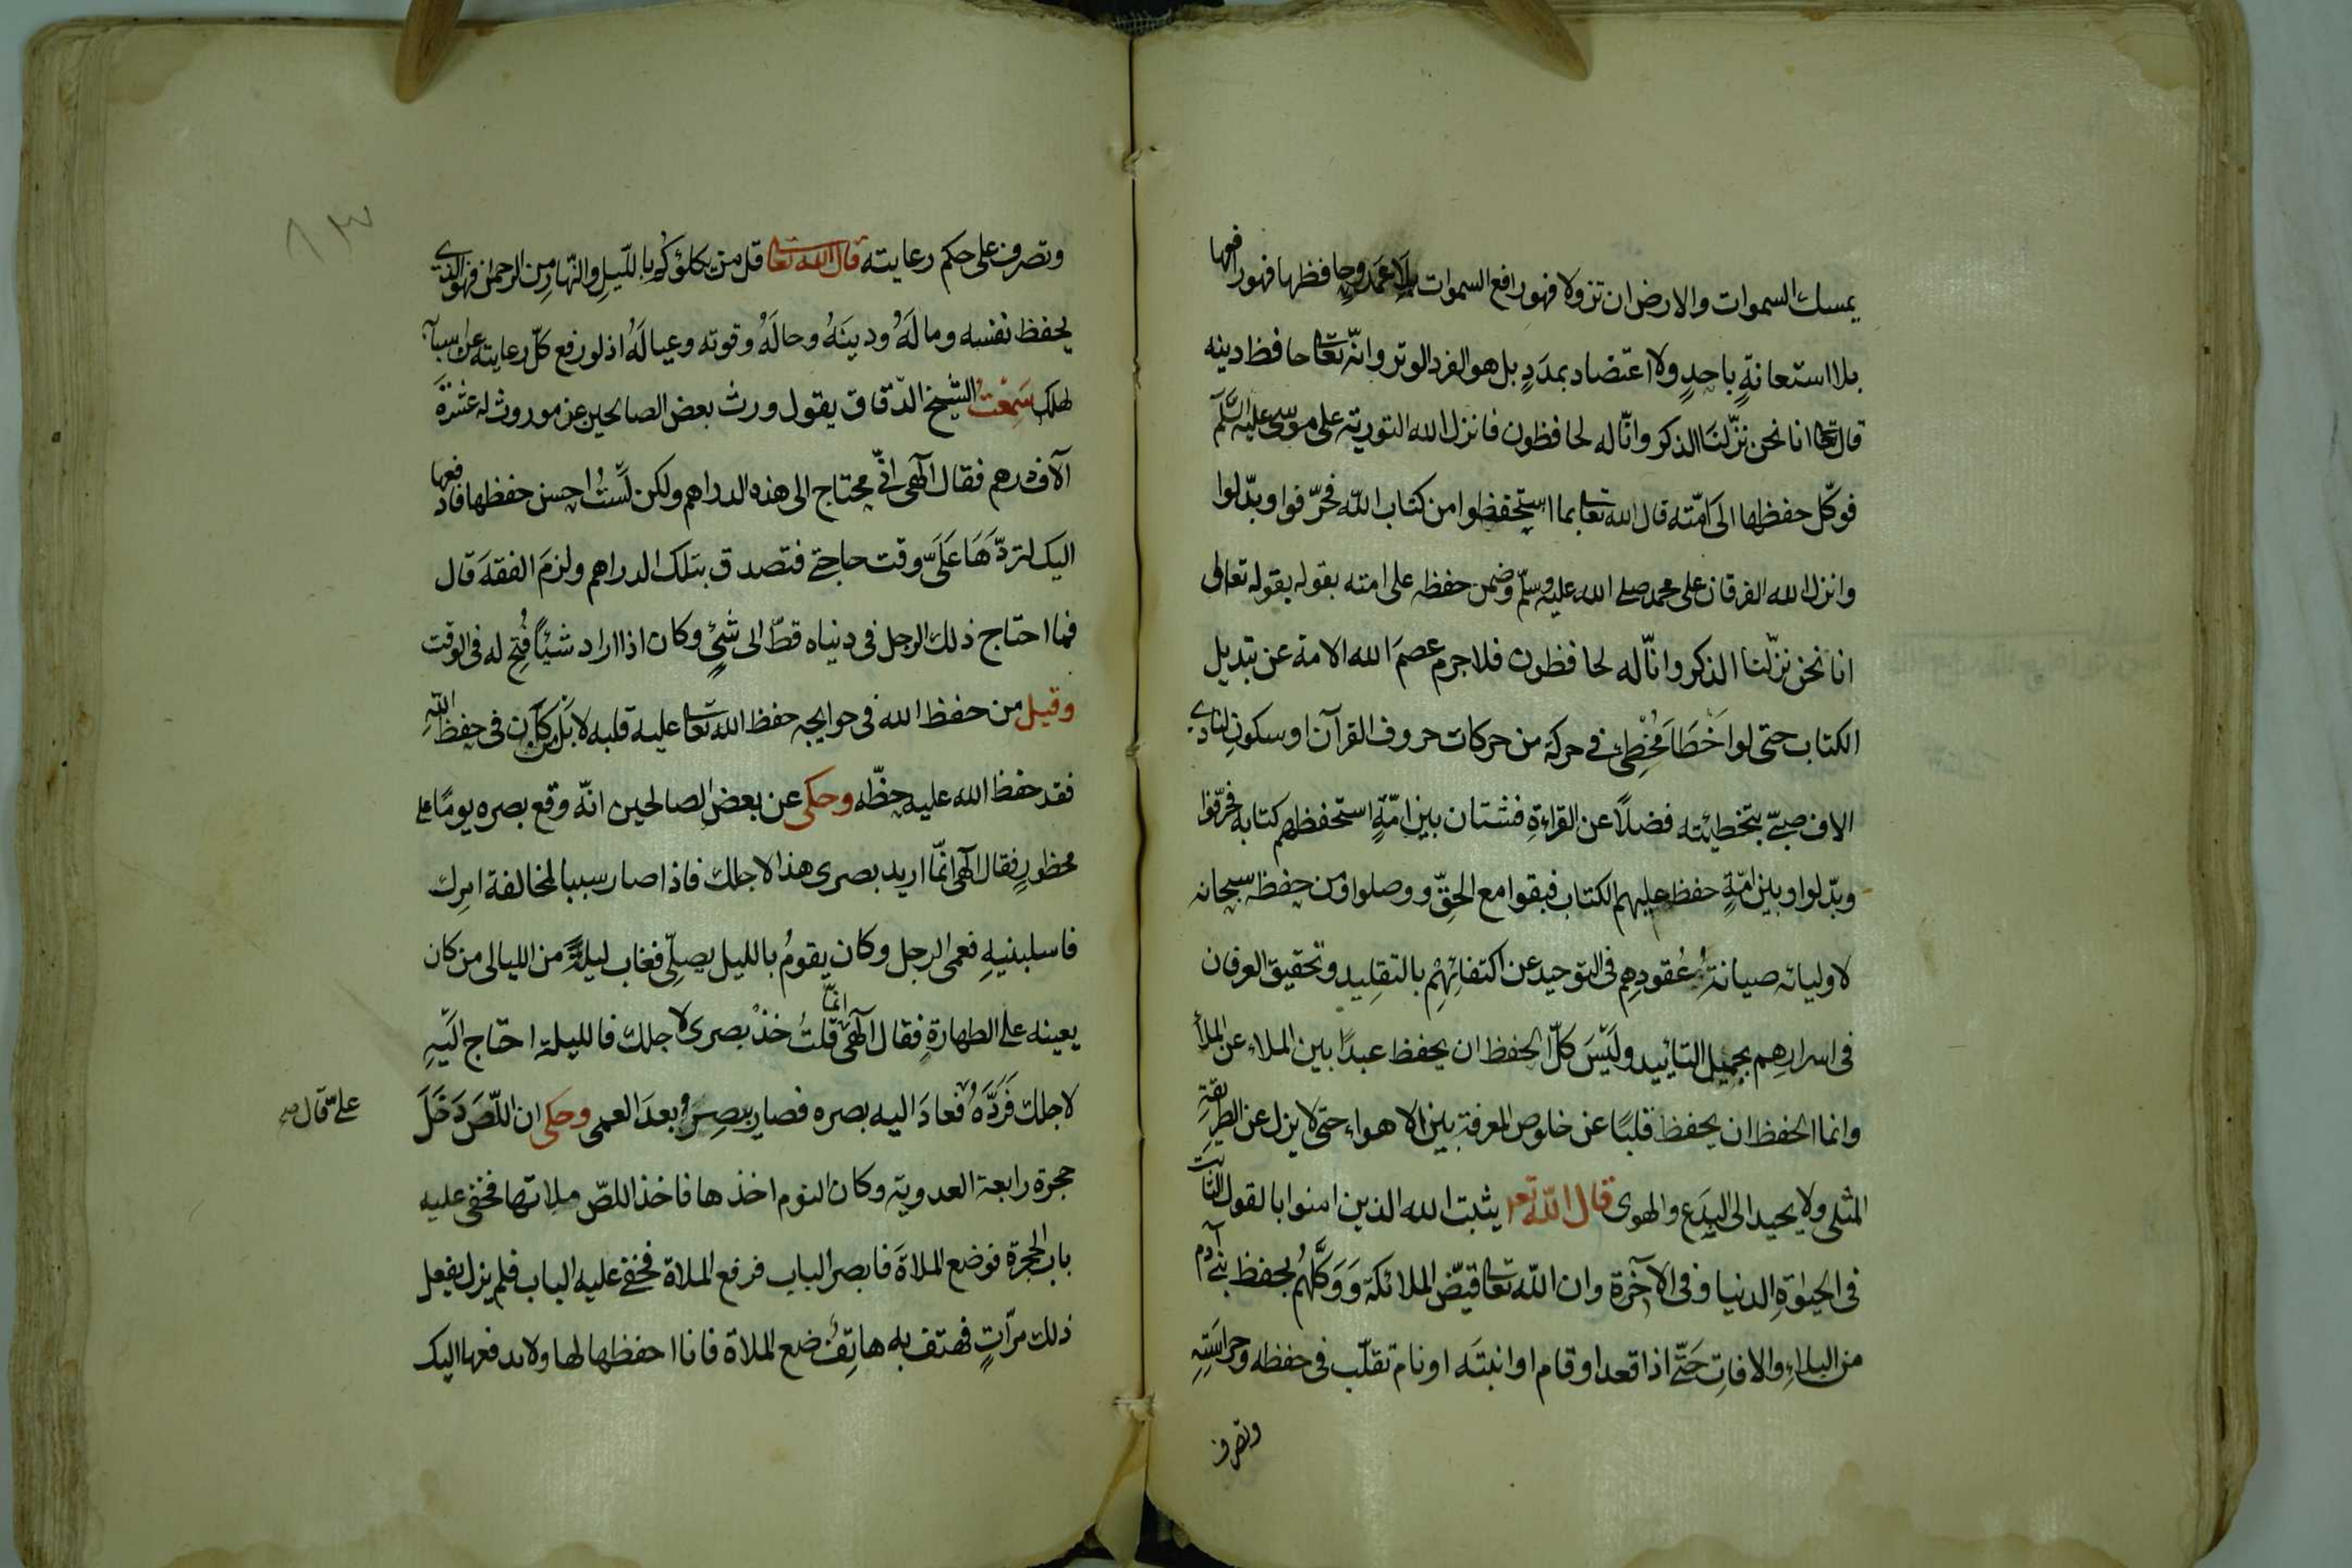 يمسك السموات والارض ان تزولا فهو رافع السموات بلا عمد وحافظها فهو رافعها
بلا استعانةٍ باحدٍ ولا اعتضاد بمددٍ بل هو الفرد الوتر وانّه تعالى حافظ دينه
قال تعالى انا نحن نزّلنا الذكر وانّا له لحافظون فانزل الله التورية على موسى عليه السّلم
فوكّل حفظها الى امّته قال الله تعالى بما استحفظوا من كتاب الله فحرّفوا وبدّلوا
وانزل الله الفرقان على محمد صلى الله عليه وسلّم وضمن حفظه على امته بقوله بقوله تعالى
انا نحن نزّلنا الذكر وانّا له لحافظون فلا جرم عصمَ الله الامة عن تبديل
الكتاب حتى لو اخْطَأ مُخْطِئ في حركة من حركات حروف القرآن او سكونٍ لنادى
الاف صبىّ بتخطيئته فضلاً عن القراءةِ فشتان بين امّةٍ استحفظهم كتابه فحرّفوا
وبدّلوا وبين امّةٍ حفظ عليهم الكتاب فبقوا مع الحقّ ووصلوا ومن حفظه سبحانه
لاوليائه صيانةُ عُقودِهم في التوحيد عن اكتفائِهِم بالتقليد وتحقيق العرفان
في اسرارهم بجميل التأييد وليْسَ كلّ الحفظ ان يحفظ عبدًا بين الملاء عن الملأ
وانما الحفظ ان يحفظ قلبًا عن خلوص المعرفة بين الاهواء حتى لا يزل عن الطريقةِ
المثلى ولا يحيد الى البِدَع والهوى قال الله تع يثبت الله الذين امنوا بالقول الثابت
في الحيوةِ الدنيا وفي الآخرة وان الله تعالى قيّض الملائكة وَوَكَّلَهُم بحفظ بني آدم
من البلاءِ والافاتِ حَتّى اذا قعد او قام او انبتَه او نام تقلّب في حفظه وحراسَتِهِ
وتصرف
وتصرف على حكم رعايته قال الله تعالى قل من يكلؤكم بالليلِ والنّهار مِن الرحمن فهو الذي
يحفظ نفسه وما لَهُ ودينَهُ وحالَهُ وقوته وعيالَهُ اذ لو رفع كلّ رعايته عن اسبابه
لهلك سَمِعْتُ الشّيخ الدّقاق يقول ورث بعض الصالحين عن موروث له عشرَة
آلاف درهم فقال الٓهى انّي محتاج الى هذه الدراهم ولكن لَسْتُ احسن حفظها فادفعها
اليك لتردّهَا عَلَىّ وقت حاجتى فتصدق بتلك الدراهم ولزمَ الفقهَ قال
فما احتاج ذلك الرجل في دنياه قطّ الى شئٍ وكان اذا اراد شيئًا فُتِح له في الوقت
وقيل من حفظ الله في حوايجه حفظ الله تعالى عليه قلبه لا بَل من كان في حفظ اللهِ
فقد حفظ الله عليه حظّه وحكى عن بعض الصالحين انّه وقع بصره يومًا على
محظورٍ فقال الٓهى انّما اريد بصرى هذا لاجلك فاذا صار سببا لمخالفة امرك
فاسلبنيهِ فعمى الرجل وكان يقومُ بالليل يصلّى فغاب ليلةً من الليالى من كان
يعينه على الطهارةِ فقال الٓهى انمّا قلتُ خذْ بصرى لاجلك فالليلة احتاج الَيْهِ
لاجلك فَرَدَّهُ فعادَ اليه بصره فصار يبصِرُ بعدَ العمى وحكى ان اللّصَ دَخَلَ
علىّ قال صح
حجرة رابعة العدوية وكان النوم اخذها فاخذ اللصّ ملاتها فخفى عليه
باب الحجرة فوضع الملاةَ فابصر الباب فرفع الملاة فخفى عليه الباب فلم يزل يفعل
ذلك مرّاتٍ فهتف به هاتِفٌ ضع الملاة فانا احفظها لها ولا ندفعها اليك